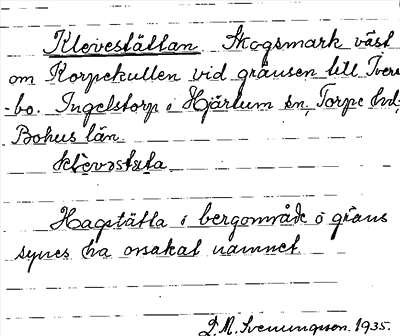 Klevestättan Skogsmark väst
om Korpekullen vid gränsen till Tvere
-bo. Ingelstorp i Hjärtum sn, Torpe hd,
Bohus län.
Hagstätta i bergområde o gräns
synes ha orsakat namnet.
D.A. Svenungsson 1935.